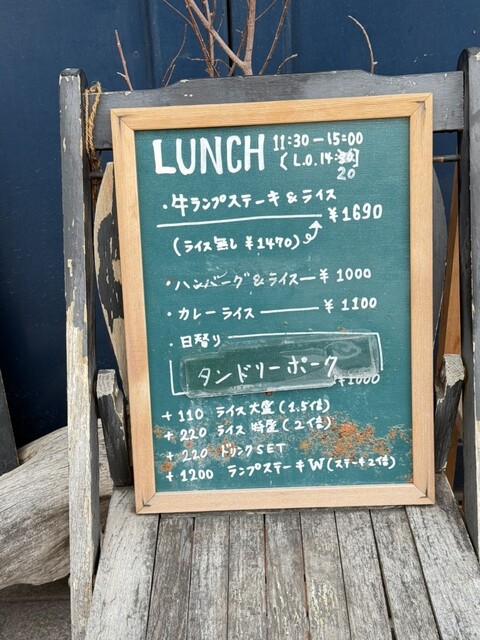 LUNCH 11:30-15:00
(L.O. 14:20)
・牛ランプステーキ&ライス
¥1690
(ライス無し ¥1470)
・ハンバーグ&ライス—¥1000
・カレーライス—¥1100
・日替り
タンドリーポーク
¥1000
+110 ライス大盛(1.5倍)
+220 ライス特盛(2倍)
+220 ドリンクSET
+1200 ランプステーキW(ステーキ2倍)